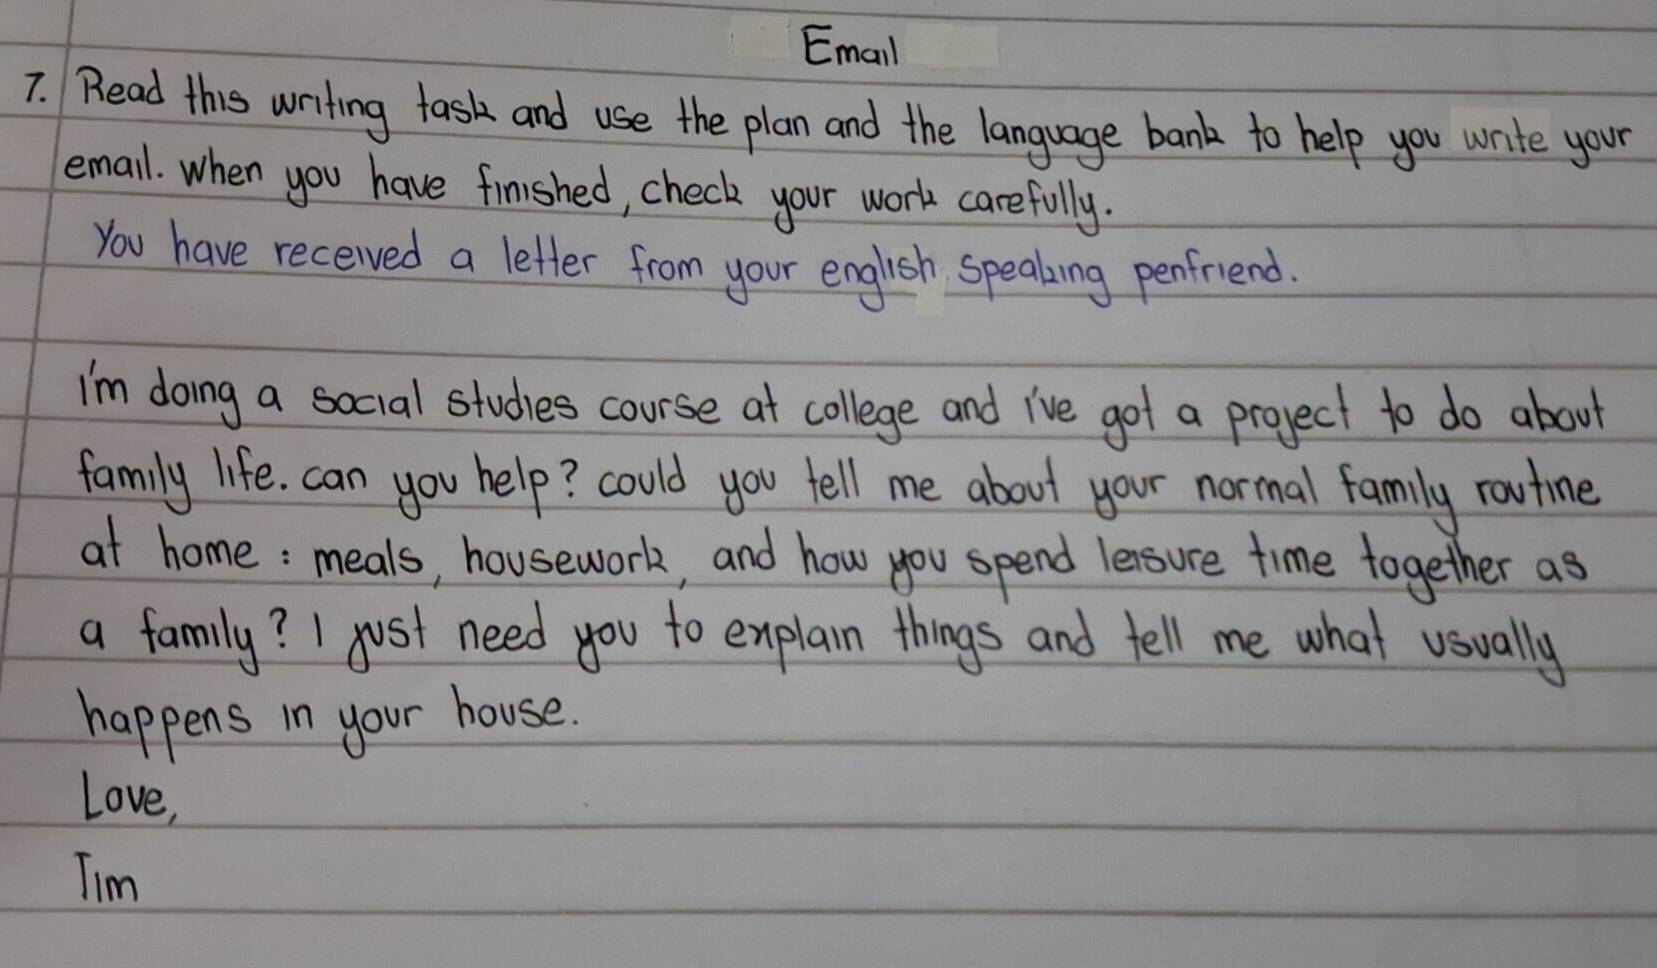 Email
7. Read this writing task and use the plan and the language bank to help you write your
email. When you have finished, check your work carefully.
You have received a letter from your english speaking penfriend.
i'm doing a social studies course at college and i've got a project to do about
family life. can you help? could you tell me about your normal family routine
at home : meals, housework, and how you spend leisure time together as
a family? I just need you to explain things and tell me what usually
happens in your house.
Love,
Tim